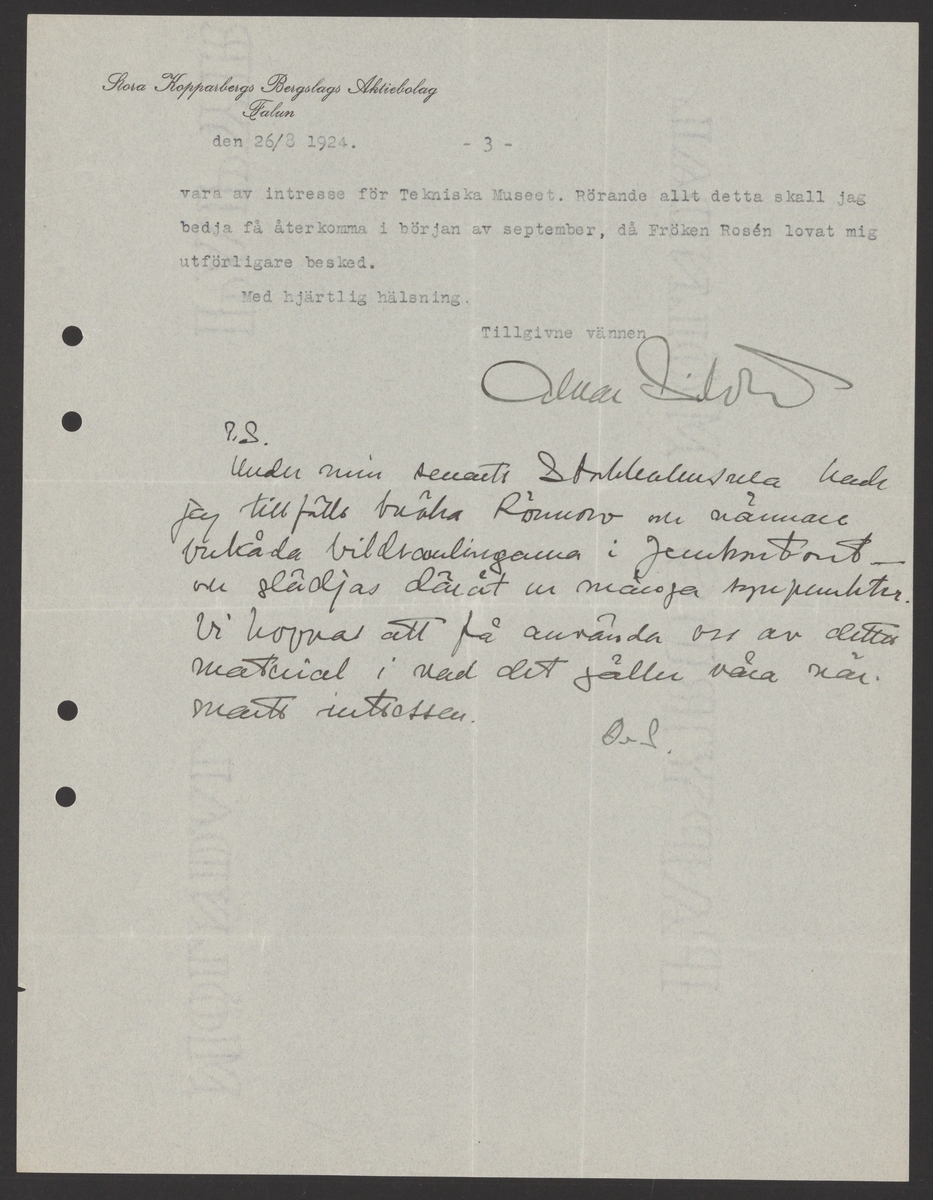 Stora Kopparbergs Bergslags Aktiebolag
Falun
den 26/8 1924. - 3 -
vara av intresse för Tekniska Museet. Rörande allt detta skall jag
bedja få återkomma i början av september, då Fröken Rosén lovat mig
utförligare besked.
Med hjärtlig hälsning.
Tillgivne vännen
P.S.
Under min senaste Stockholmsresa hade
jag tillfälle besöka Rönnow och närmare
bildsamlingarna i Jernkontoret —
och glädjas däråt ur många synpunkter.
Vi hoppas att få använda oss av detta
material i vad det gäller våra när-
maste intressen.
D.S.